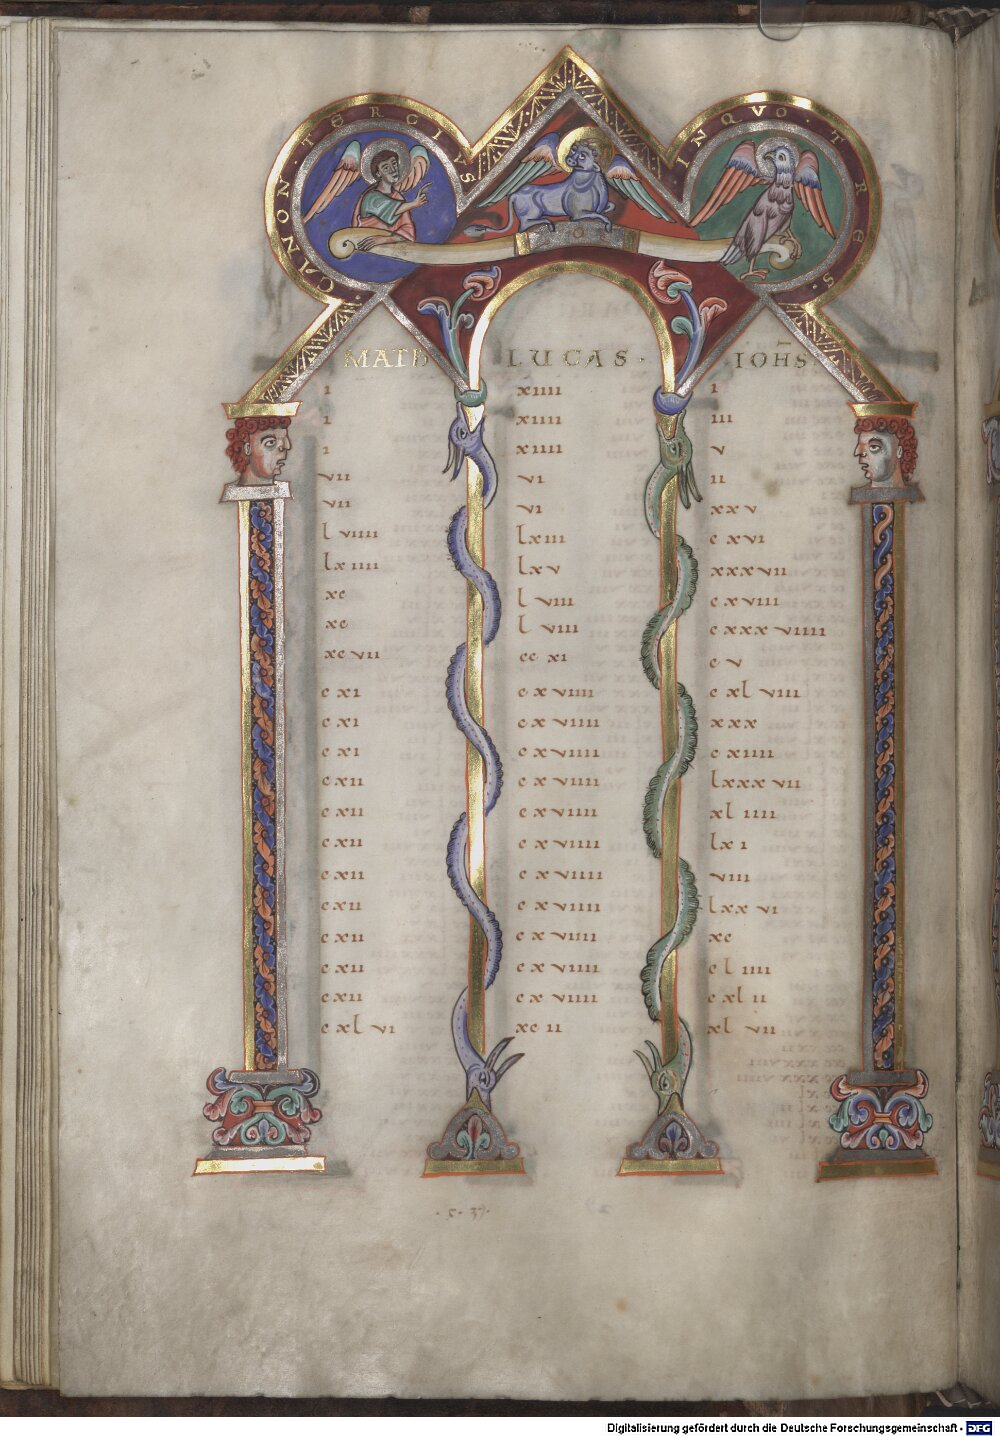 CANON · TERCIVS INQVO · TRES ·
MATH LUCAS · IOHS
I XIIII I
I XIIII III
I XIIII V
VII VI II
VII VI XXV
LVIIII LXIII CXVI
LXIIII LXV XXXVII
XC LVIII CXVIII
XC LVIII CXXXVIIII
XCVII CCXI CV
CXI CXVIIII CXLVIII
CXI CXVIIII XXX
CXI CXVIIII CXIIII
CXII CXVIIII LXXXVII
CXII CXVIIII XLIIII
CXII CXVIIII LXI
CXII CXVIIII VIII
CXII CXVIIII LXXVI
CXII CXVIIII XC
CXII CXVIIII CLIIII
CXII CXVIIII CXLII
CXLVI XCII XLVII
Digitalisierung gefördert durch die Deutsche Forschungsgemeinschaft - DFG